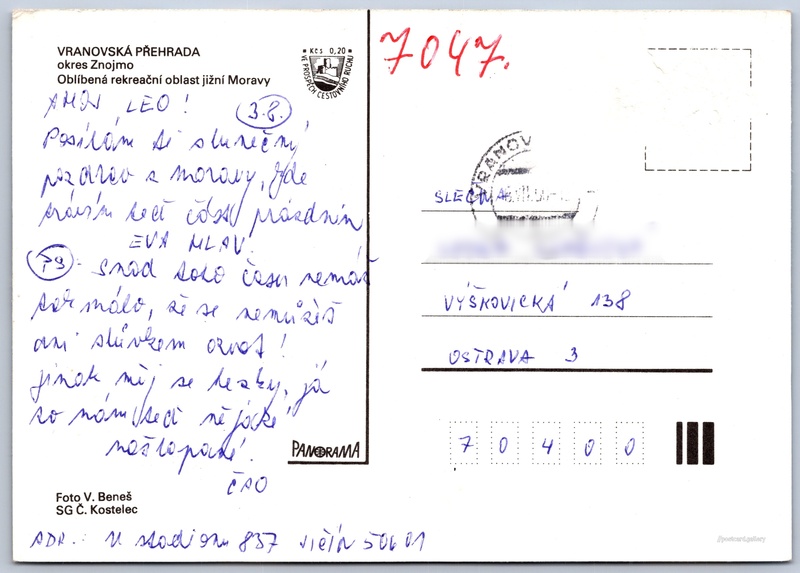 VRANOVSKÁ PŘEHRADA
okres Znojmo
Oblíbená rekreační oblast jižní Moravy
* Kčs 0,20 *
VE PROSPĚCH CESTOVNÍHO RUCHU
7047.
AHOJ LEO!
3.8.
Posílám ti slunečný
pozdrav z moravy, kde
trávím teď část prázdnin
EVA MLAV.
PS. Snad toto času nemáš
tak málo, že se nemůžeš
ani slůvkem ozvat!
jinak měj se hezky, já
to mám teď nějaké
našlapané!
ČAO
PANORAMA
Foto V. Beneš
SG Č. Kostelec
ADR.: U stadionu 857 Jičín 50601
VRANOV
SLEČNA
VÝŠKOVICKÁ 138
OSTRAVA 3
7 0 4 0 0
//postcard.gallery